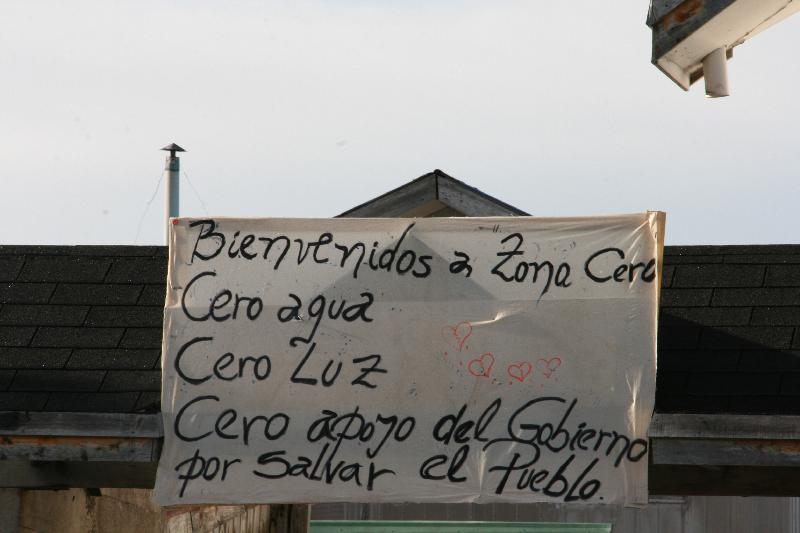 Bienvenidos a Zona Cero
Cero agua
Cero Luz
Cero apoyo del Gobierno
por salvar el Pueblo.